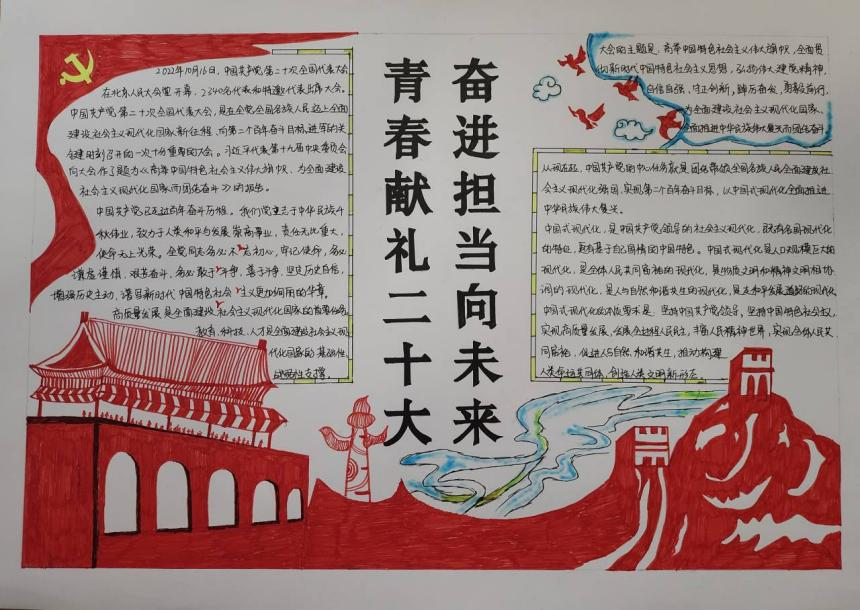 奋进担当向未来
青春献礼二十大
2022年10月16日，中国共产党第二十次全国代表大会
在北京人民大会堂开幕，2340名代表和特邀代表出席大会。
中国共产党第二十次全国代表大会，是在全党全国各族人民迈上全面
建设社会主义现代化国家新征程、向第二个百年奋斗目标进军的关
键时刻召开的一次十分重要的大会。习近平代表第十九届中央委员会
向大会作了题为《高举中国特色社会主义伟大旗帜 为全面建设
社会主义现代化国家而团结奋斗》的报告。
中国共产党已走过百年奋斗历程。我们党立志于中华民族千
秋伟业，致力于人类和平与发展崇高事业，责任无比重大，
使命无上光荣。全党同志务必不忘初心，牢记使命，务必
谦虚谨慎、艰苦奋斗，务必敢于斗争、善于斗争，坚定历史自信，
增强历史主动，谱写新时代中国特色社会主义更加绚丽的华章。
高质量发展是全面建设社会主义现代化国家的首要任务
教育、科技、人才是全面建设社会主义现
代化国家的基础性、
战略性支撑。
大会的主题是：高举中国特色社会主义伟大旗帜，全面贯
彻新时代中国特色社会主义思想，弘扬伟大建党精神，
自信自强、守正创新，踔厉奋发、勇毅前行，
为全面建设社会主义现代化国家、
全面推进中华民族伟大复兴而团结奋斗
从现在起，中国共产党的中心任务就是团结带领全国各族人民全面建成社
会主义现代化强国、实现第二个百年奋斗目标，以中国式现代化全面推进
中华民族伟大复兴。
中国式现代化，是中国共产党领导的社会主义现代化，既有各国现代化
的特征，更有基于自己国情的中国特色。中国式现代化是人口规模巨大的
现代化，是全体人民共同富裕的现代化，是物质文明和精神文明相协
调的现代化，是人与自然和谐共生的现代化，是走和平发展道路的现代化
中国式现代化的本质要求是：坚持中国共产党领导，坚持中国特色社会主义，
实现高质量发展，发展全过程人民民主，丰富人民精神世界，实现全体人民共
同富裕，促进人与自然和谐共生，推动构建
人类命运共同体，创造人类文明新形态